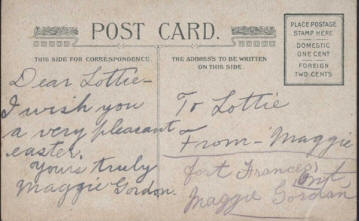 POST CARD.
PLACE POSTAGE
STAMP HERE
DOMESTIC
ONE CENT
FOREIGN
TWO CENTS
THIS SIDE FOR CORRESPONDENCE.
Dear Lottie-
I wish you
a very pleasant
easter.
Yours truly
Maggie Gordon.
THE ADDRESS TO BE WRITTEN
ON THIS SIDE.
To Lottie
From-Maggie
fort Frances
Ont
Maggie Gordan